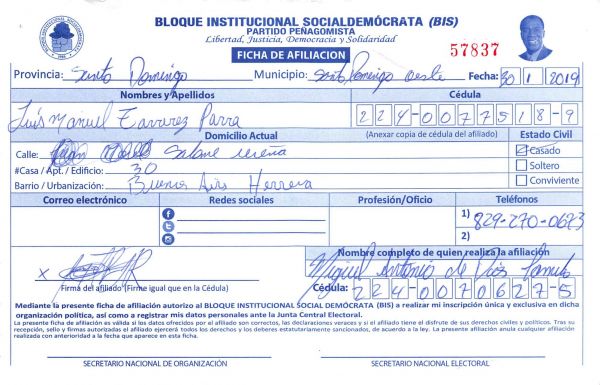 BLOQUE INSTITUCIONAL SOCIALDEMÓCRATA (BIS)
PARTIDO PEÑAGOMISTA
Libertad, Justicia, Democracia y Solidaridad
FICHA DE AFILIACION
57837
Provincia: Santo Domingo Municipio: Santo Domingo oeste Fecha: 30 1 2019
Nombres y Apellidos Cédula
Luis Manuel Tavarez Parra 224-0077518-9
Domicilio Actual (Anexar copia de cédula del afiliado) Estado Civil
Calle: Salome ureña Casado
#Casa / Apt. / Edificio: 30 Soltero
Barrio / Urbanización: Buenos Aires Herrera Conviviente
Correo electrónico Redes sociales Profesión/Oficio Teléfonos
1) 829-270-0673
2)
Nombre completo de quien realiza la afiliación
X Miguel Antonio de
Firma del afiliado (Firme igual que en la Cédula) Cédula: 224-0070627-5
Mediante la presente ficha de afiliación autorizo al BLOQUE INSTITUCIONAL SOCIAL DEMÓCRATA (BIS) a realizar mi inscripción única y exclusiva en dicha
organización política, así como a registrar mis datos personales ante la Junta Central Electoral.
La presente ficha de afiliación es válida si los datos ofrecidos por el afiliado son correctos, las declaraciones veraces y si el afiliado tiene el disfrute de sus derechos civiles y políticos. Tras su
recepción, sello y firmas autorizadas el afiliado ejercerá todos los derechos y los deberes estatutariamente sancionados, de acuerdo a la ley. La presente afiliación anula cualquier afiliación
realizada con anterioridad a la fecha que aparece en esta ficha.
SECRETARIO NACIONAL DE ORGANIZACIÓN SECRETARIO NACIONAL ELECTORAL